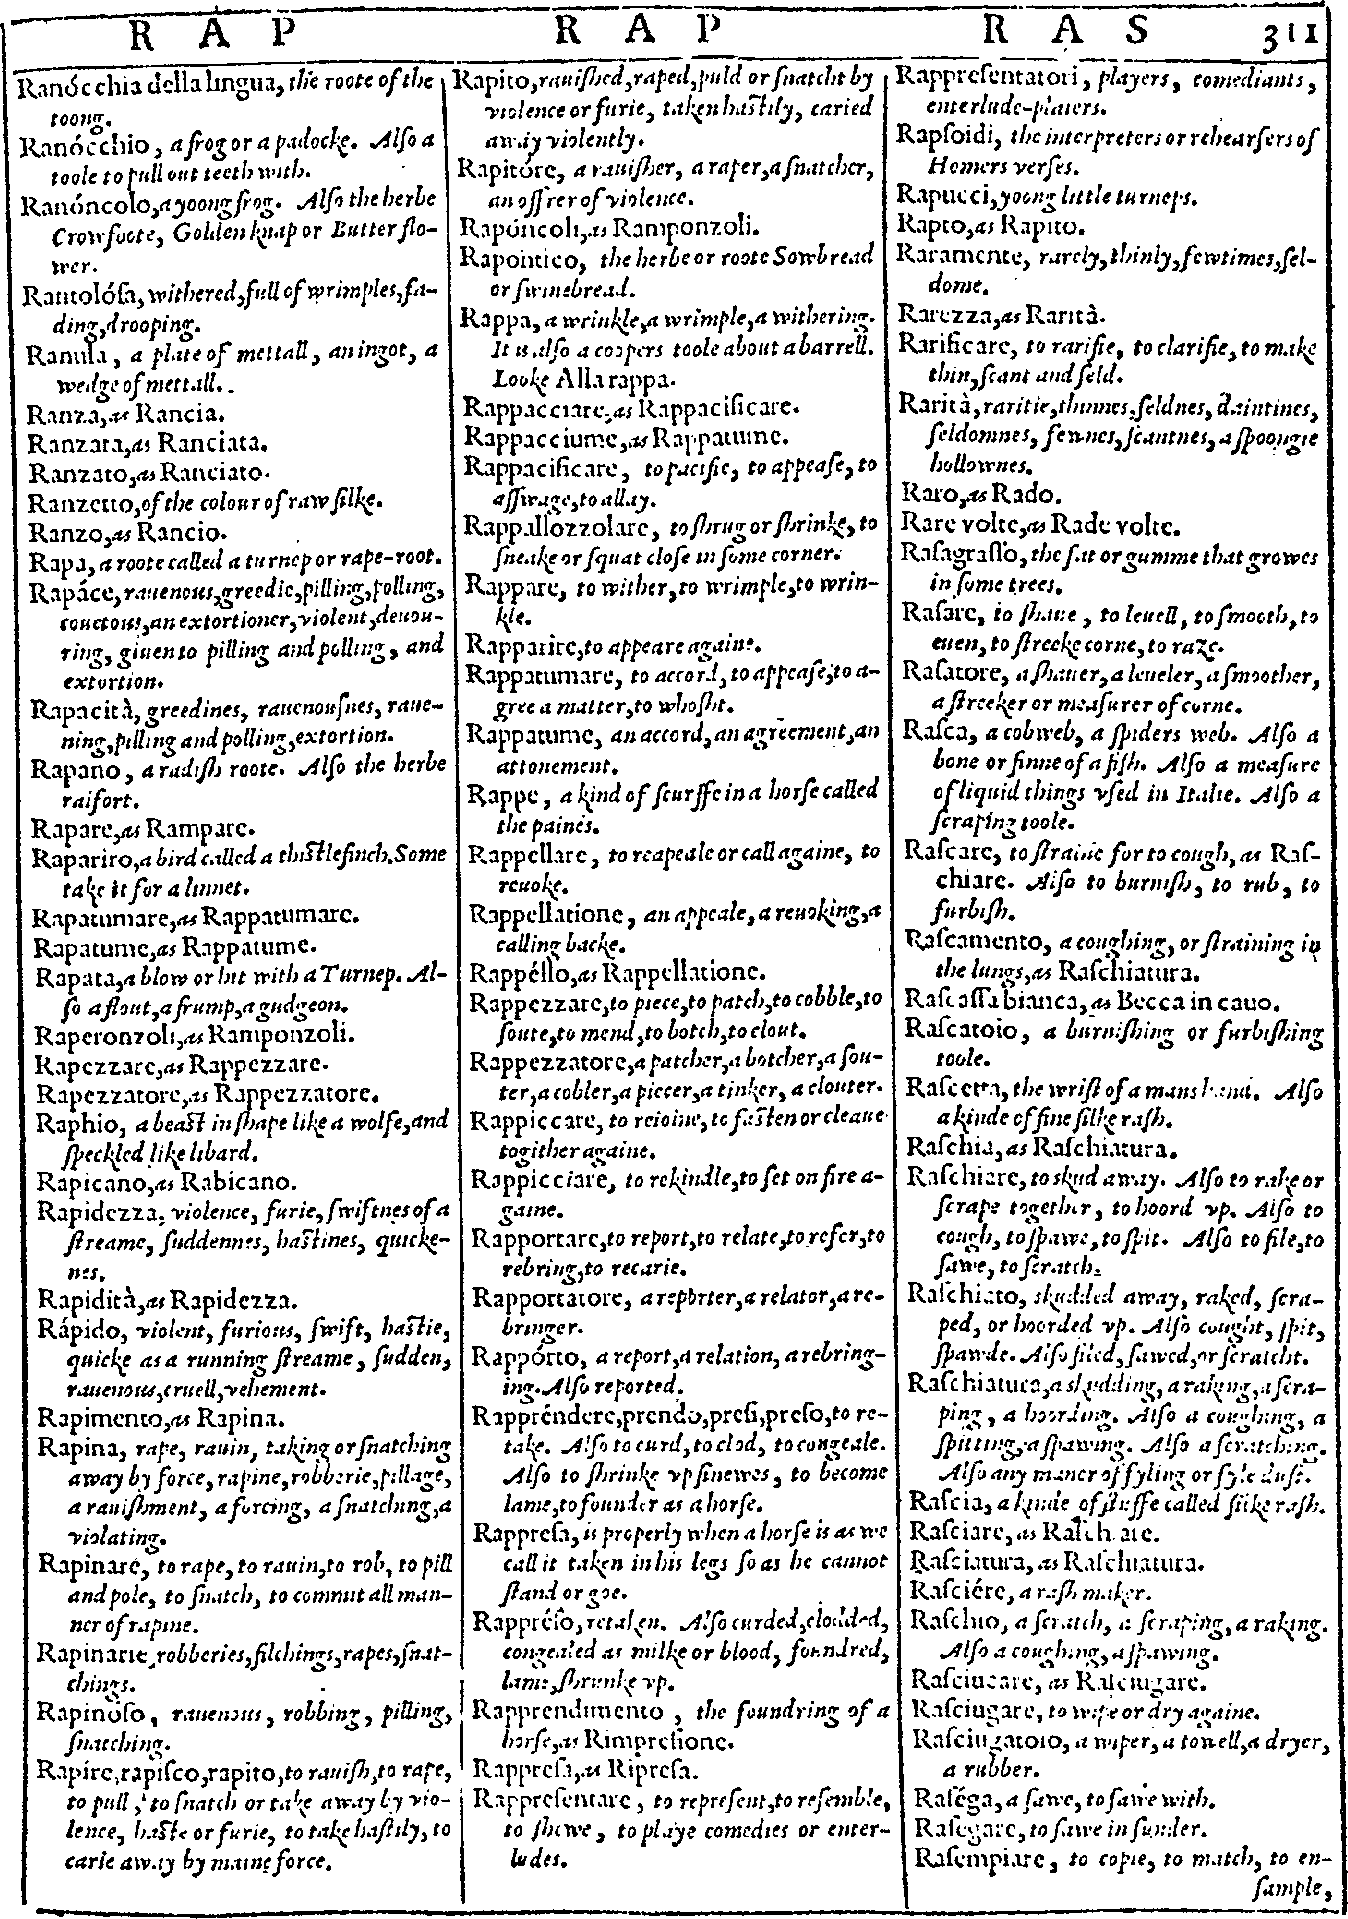 R A P R A P R A S 311
Ranócchia della lingua, the roote of the
toong.
Ranócchio, a frog or a padocke. Also a
toole to pull out teeth with.
Ranóncolo, a yoong frog. Also the herbe
Crowfoote, Golden knap or Butter flo-
wer.
Rantolósa, withered, full of wrimples, fa-
ding, drooping.
Ranula, a plate of mettall, an ingot, a
wedge of mettall.
Ranza, as Rancia.
Ranzata, as Ranciata.
Ranzato, as Ranciato.
Ranzetto, of the colour of raw silke.
Ranzo, as Rancio.
Rapa, a roote called a turnep or rape-root.
Rapáce, rauenous, greedie, pilling, polling,
couetous, an extortioner, violent, deuou-
ring, giuen to pilling and polling, and
extortion.
Rapacità, greedines, rauenousnes, raue-
ning, pilling and polling, extortion.
Rapano, a radish roote. Also the herbe
raifort.
Rapare, as Rampare.
Rapariro, a bird called a thistlefinch. Some
take it for a linnet.
Rapatumare, as Rappatumare.
Rapatume, as Rappatume.
Rapata, a blow or hit with a Turnep. Al-
so a flout, a frump, a gudgeon.
Raperonzoli, as Ramponzoli.
Rapezzare, as Rappezzare.
Rapezzatore, as Rappezzatore.
Raphio, a beast in shape like a wolfe, and
speckled like libard.
Rapicano, as Rabicano.
Rapidezza, violence, furie, swiftnes of a
streame, suddennes, hastines, quicke-
nes.
Rapidità, as Rapidezza.
Rápido, violent, furious, swift, hastie,
quicke as a running streame, sudden,
rauenous, cruell, vehement.
Rapimento, as Rapina.
Rapina, rape, rauin, taking or snatching
away by force, rapine, robberie, pillage,
a rauishment, a forcing, a snatching, a
violating.
Rapinare, to rape, to rauin, to rob, to pill
and pole, to snatch, to commit all man-
ner of rapine.
Rapinarie, robberies, filchings, rapes, snat-
chings.
Rapinóso, rauenous, robbing, pilling,
snatching.
Rapire, rapisco, rapito, to rauish, to rape,
to pull, to snatch or take away by vio-
lence, haste or furie, to take hastily, to
carie away by maine force.
Rapito, rauished, raped, puld or snatcht by
violence or furie, taken hastily, caried
away violently.
Rapitóre, a rauisher, a raper, a snatcher,
an offrer of violence.
Rapóncoli, as Ramponzoli.
Rapontico, the herbe or roote Sowbread
or swinebread.
Rappa, a wrinkle, a wrimple, a withering.
It is also a coopers toole about a barrell.
Looke Alla rappa.
Rappacciare, as Rappacificare.
Rappacciume, as Rappatume.
Rappacificare, to pacifie, to appease, to
asswage, to allay.
Rappallozzolare, to shrug or shrinke, to
sneake or squat close in some corner.
Rappare, to wither, to wrimple, to wrin-
kle.
Rapparire, to appeare againe.
Rappatumare, to accord, to appease, to a-
gree a matter, to whosht.
Rappatume, an accord, an agreement, an
attonement.
Rappe, a kind of scurffe in a horse called
the paines.
Rappellare, to reapeale or call againe, to
reuoke.
Rappellatione, an appeale, a reuoking, a
calling backe.
Rappéllo, as Rappellatione.
Rappezzare, to piece, to patch, to cobble, to
soute, to mend, to botch, to clout.
Rappezzatore, a patcher, a botcher, a sou-
ter, a cobler, a piecer, a tinker, a clouter.
Rappiccare, to reioine, to fasten or cleaue
togither againe.
Rappicciare, to rekindle, to set on fire a-
gaine.
Rapportare, to report, to relate, to refer, to
rebring, to recarie.
Rapportatore, a reporter, a relator, a re-
bringer.
Rappórto, a report, a relation, a rebring-
ing. Also reported.
Rappréndere, prendo, presi, preso, to re-
take. Also to curd, to clod, to congeale.
Also to shrinke vp sinewes, to become
lame, to founder as a horse.
Rappresa, is properly when a horse is as we
call it taken in his legs so as he cannot
stand or goe.
Rappréso, retaken. Also curded, clodded,
congealed as milke or blood, foundred,
lame, shrunke vp.
Rapprendimento, the foundring of a
horse, as Rimpresione.
Rappresa, as Ripresa.
Rappresentare, to represent, to resemble,
to shewe, to playe comedies or enter-
ludes.
Rappresentatori, players, comediants,
enterlude-plaiers.
Rapsoidi, the interpreters or rehearsers of
Homers verses.
Rapucci, yoong little turneps.
Rapto, as Rapito.
Raramente, rarely, thinly, fewtimes, sel-
dome.
Rarezza, as Rarità.
Rarificare, to rarifie, to clarifie, to make
thin, scant and seld.
Rarità, raritie, thinnes, seldnes, daintines,
seldomnes, fewnes, scantnes, a spoongie
hollownes.
Raro, as Rado.
Rare volte, as Rade volte.
Rasagrasso, the fat or gumme that growes
in some trees.
Rasare, to shaue, to leuell, to smooth, to
euen, to streeke corne, to raze.
Rasatore, a shauer, a leueler, a smoother,
a streeker or measurer of corne.
Rasca, a cobweb, a spiders web. Also a
bone or finne of a fish. Also a measure
of liquid things vsed in Italie. Also a
scraping toole.
Rascare, to straine for to cough, as Ras-
chiare. Also to burnish, to rub, to
furbish.
Rascamento, a coughing, or straining in
the lungs, as Raschiatura.
Rascassa bianca, as Becca in cauo.
Rascatoio, a burnishing or furbishing
toole.
Rascetta, the wrist of a mans hand. Also
a kinde of fine silke rash.
Raschia, as Raschiatura.
Raschiare, to skud away. Also to rake or
scrape together, to hoord vp. Also to
cough, to spawe, to spit. Also to file, to
sawe, to scratch.
Raschiato, skudded away, raked, scra-
ped, or hoorded vp. Also cought, spit,
spawde. Also filed, sawed, or scratcht.
Raschiatura, a skudding, a raking, a scra-
ping, a hoording. Also a coughing, a
spitting, a spawing. Also a scratching.
Also any maner of fyling or fyle dust.
Rascia, a kinde of stuffe called silke rash.
Rasciare, as Raschiare.
Rasciatura, as Raschiatura.
Rasciére, a rash maker.
Raschio, a scratch, a scraping, a raking.
Also a coughing, a spawing.
Rasciucare, as Rasciugare.
Rasciugare, to wipe or dry againe.
Rasciugatoio, a wiper, a towell, a dryer,
a rubber.
Raséga, a sawe, to sawe with.
Rasegare, to sawe in sunder.
Rasempiare, to copie, to match, to en-
sample,